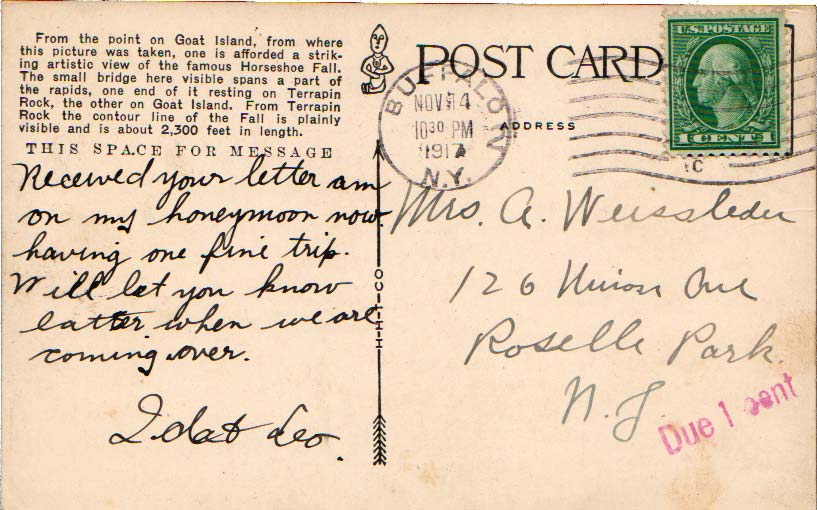 From the point on Goat Island, from where
this picture was taken, one is afforded a strik-
ing artistic view of the famous Horseshoe Fall.
The small bridge here visible spans a part of
the rapids, one end of it resting on Terrapin
Rock, the other on Goat Island. From Terrapin
Rock the contour line of the Fall is plainly
visible and is about 2,300 feet in length.
THIS SPACE FOR MESSAGE
Received your letter am
on my honeymoon now.
having one fine trip.
Will let you know
latter when we are
coming over.
Leo.
H-I-T-CO
POST CARD
ADDRESS
BUFFALO
NOV 14
1030 PM
1917
N.Y.
U.S. POSTAGE
1 CENT 1
C
Mrs. A. Weissleder
126 Union Ave
Roselle Park.
N. J.
Due 1 cent